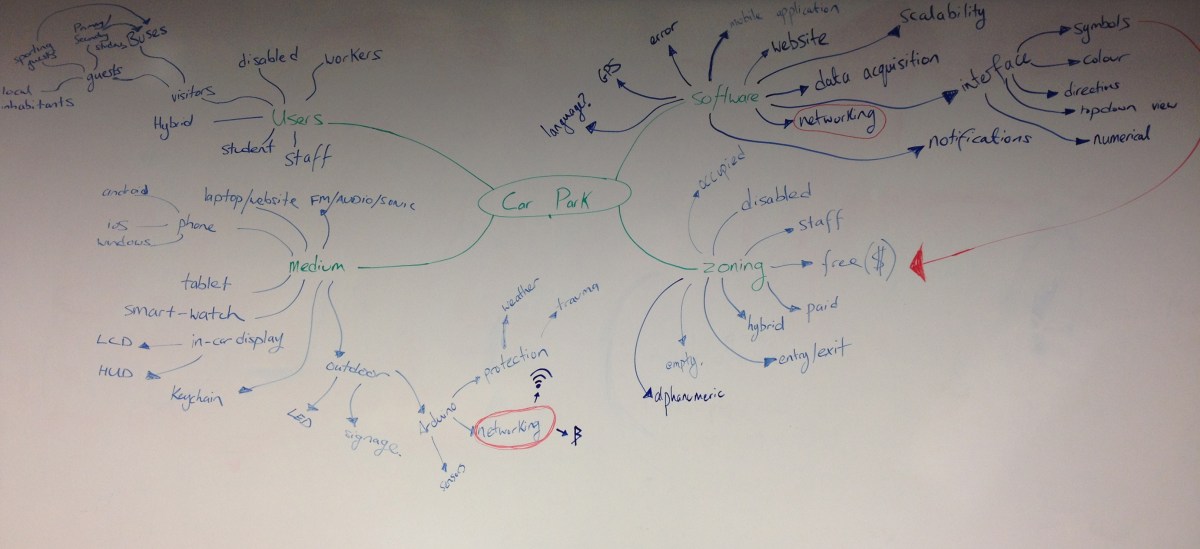 Car Park
Users
disabled
workers
visitors
guests
Buses
sporting
guests
local
inhabitants
Hybrid
student
staff
Software
error
mobile application
website
scalability
GPS
language?
data acquisition
networking
notifications
interface
symbols
colour
directions
topdown view
numerical
Medium
laptop/website
FM/AUDIO/sonic
phone
android
ios
windows
tablet
smart-watch
in-car display
LCD
HUD
Keychain
outdoor
LED
signage.
Arduino
sensors
protection
weather
trauma
networking
zoning
occupied
disabled
staff
free($)
paid
hybrid
entry/exit
empty.
alphanumeric